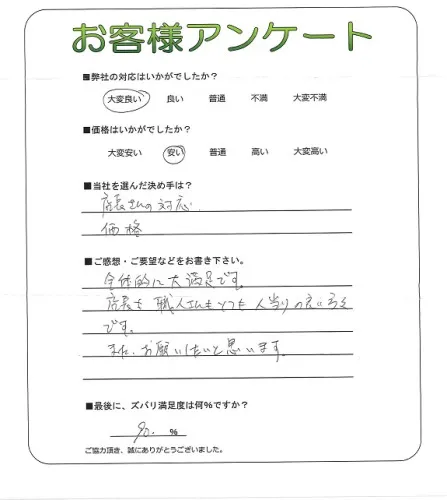 お客様アンケート
■弊社の対応はいかがでしたか?
大変良い 良い 普通 不満 大変不満
■価格はいかがでしたか?
大変安い 安い 普通 高い 大変高い
■当社を選んだ決め手は?
店長さんの対応.
価格
■ご感想・ご要望などをお書き下さい。
全体的に大満足です。
店長も職人さんもとても人当りの良い
です。
また、お願いしたいと思います。
■最後に、ズバリ満足度は何%ですか?
90. %
ご協力頂き、誠にありがとうございました。